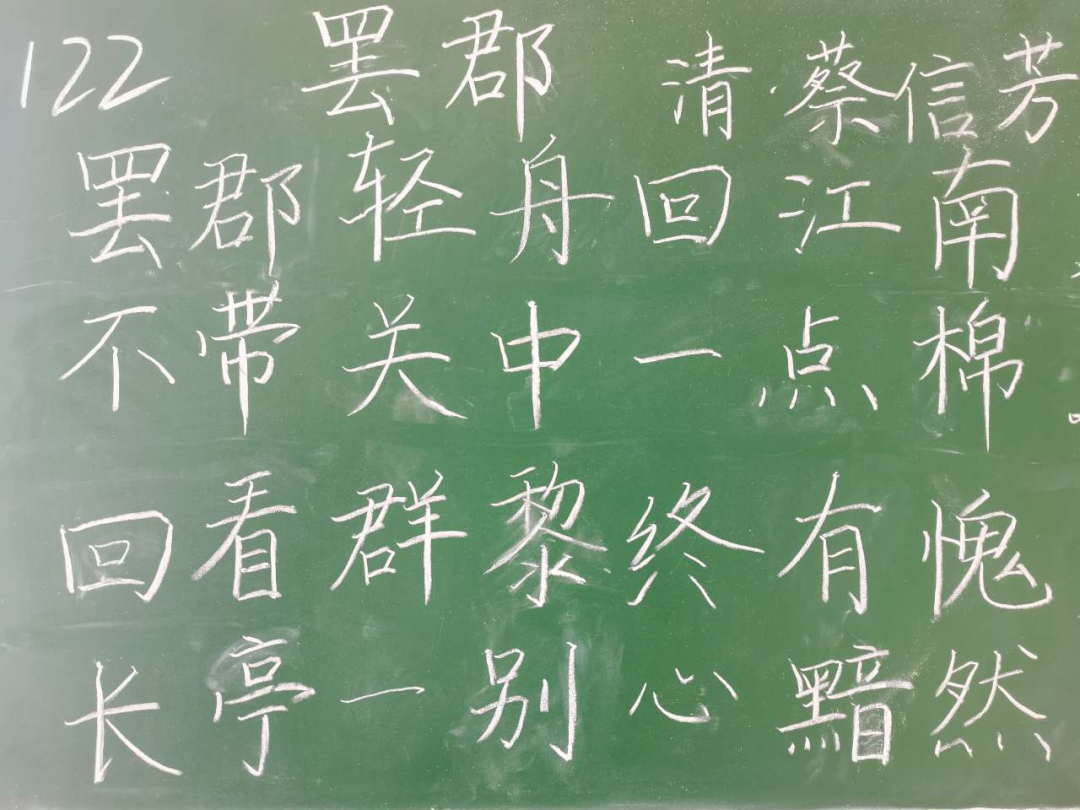 122 罢郡 清·蔡信芳
罢郡轻舟回江南
不带关中一点棉。
回看群黎终有愧
长亭一别心黯然